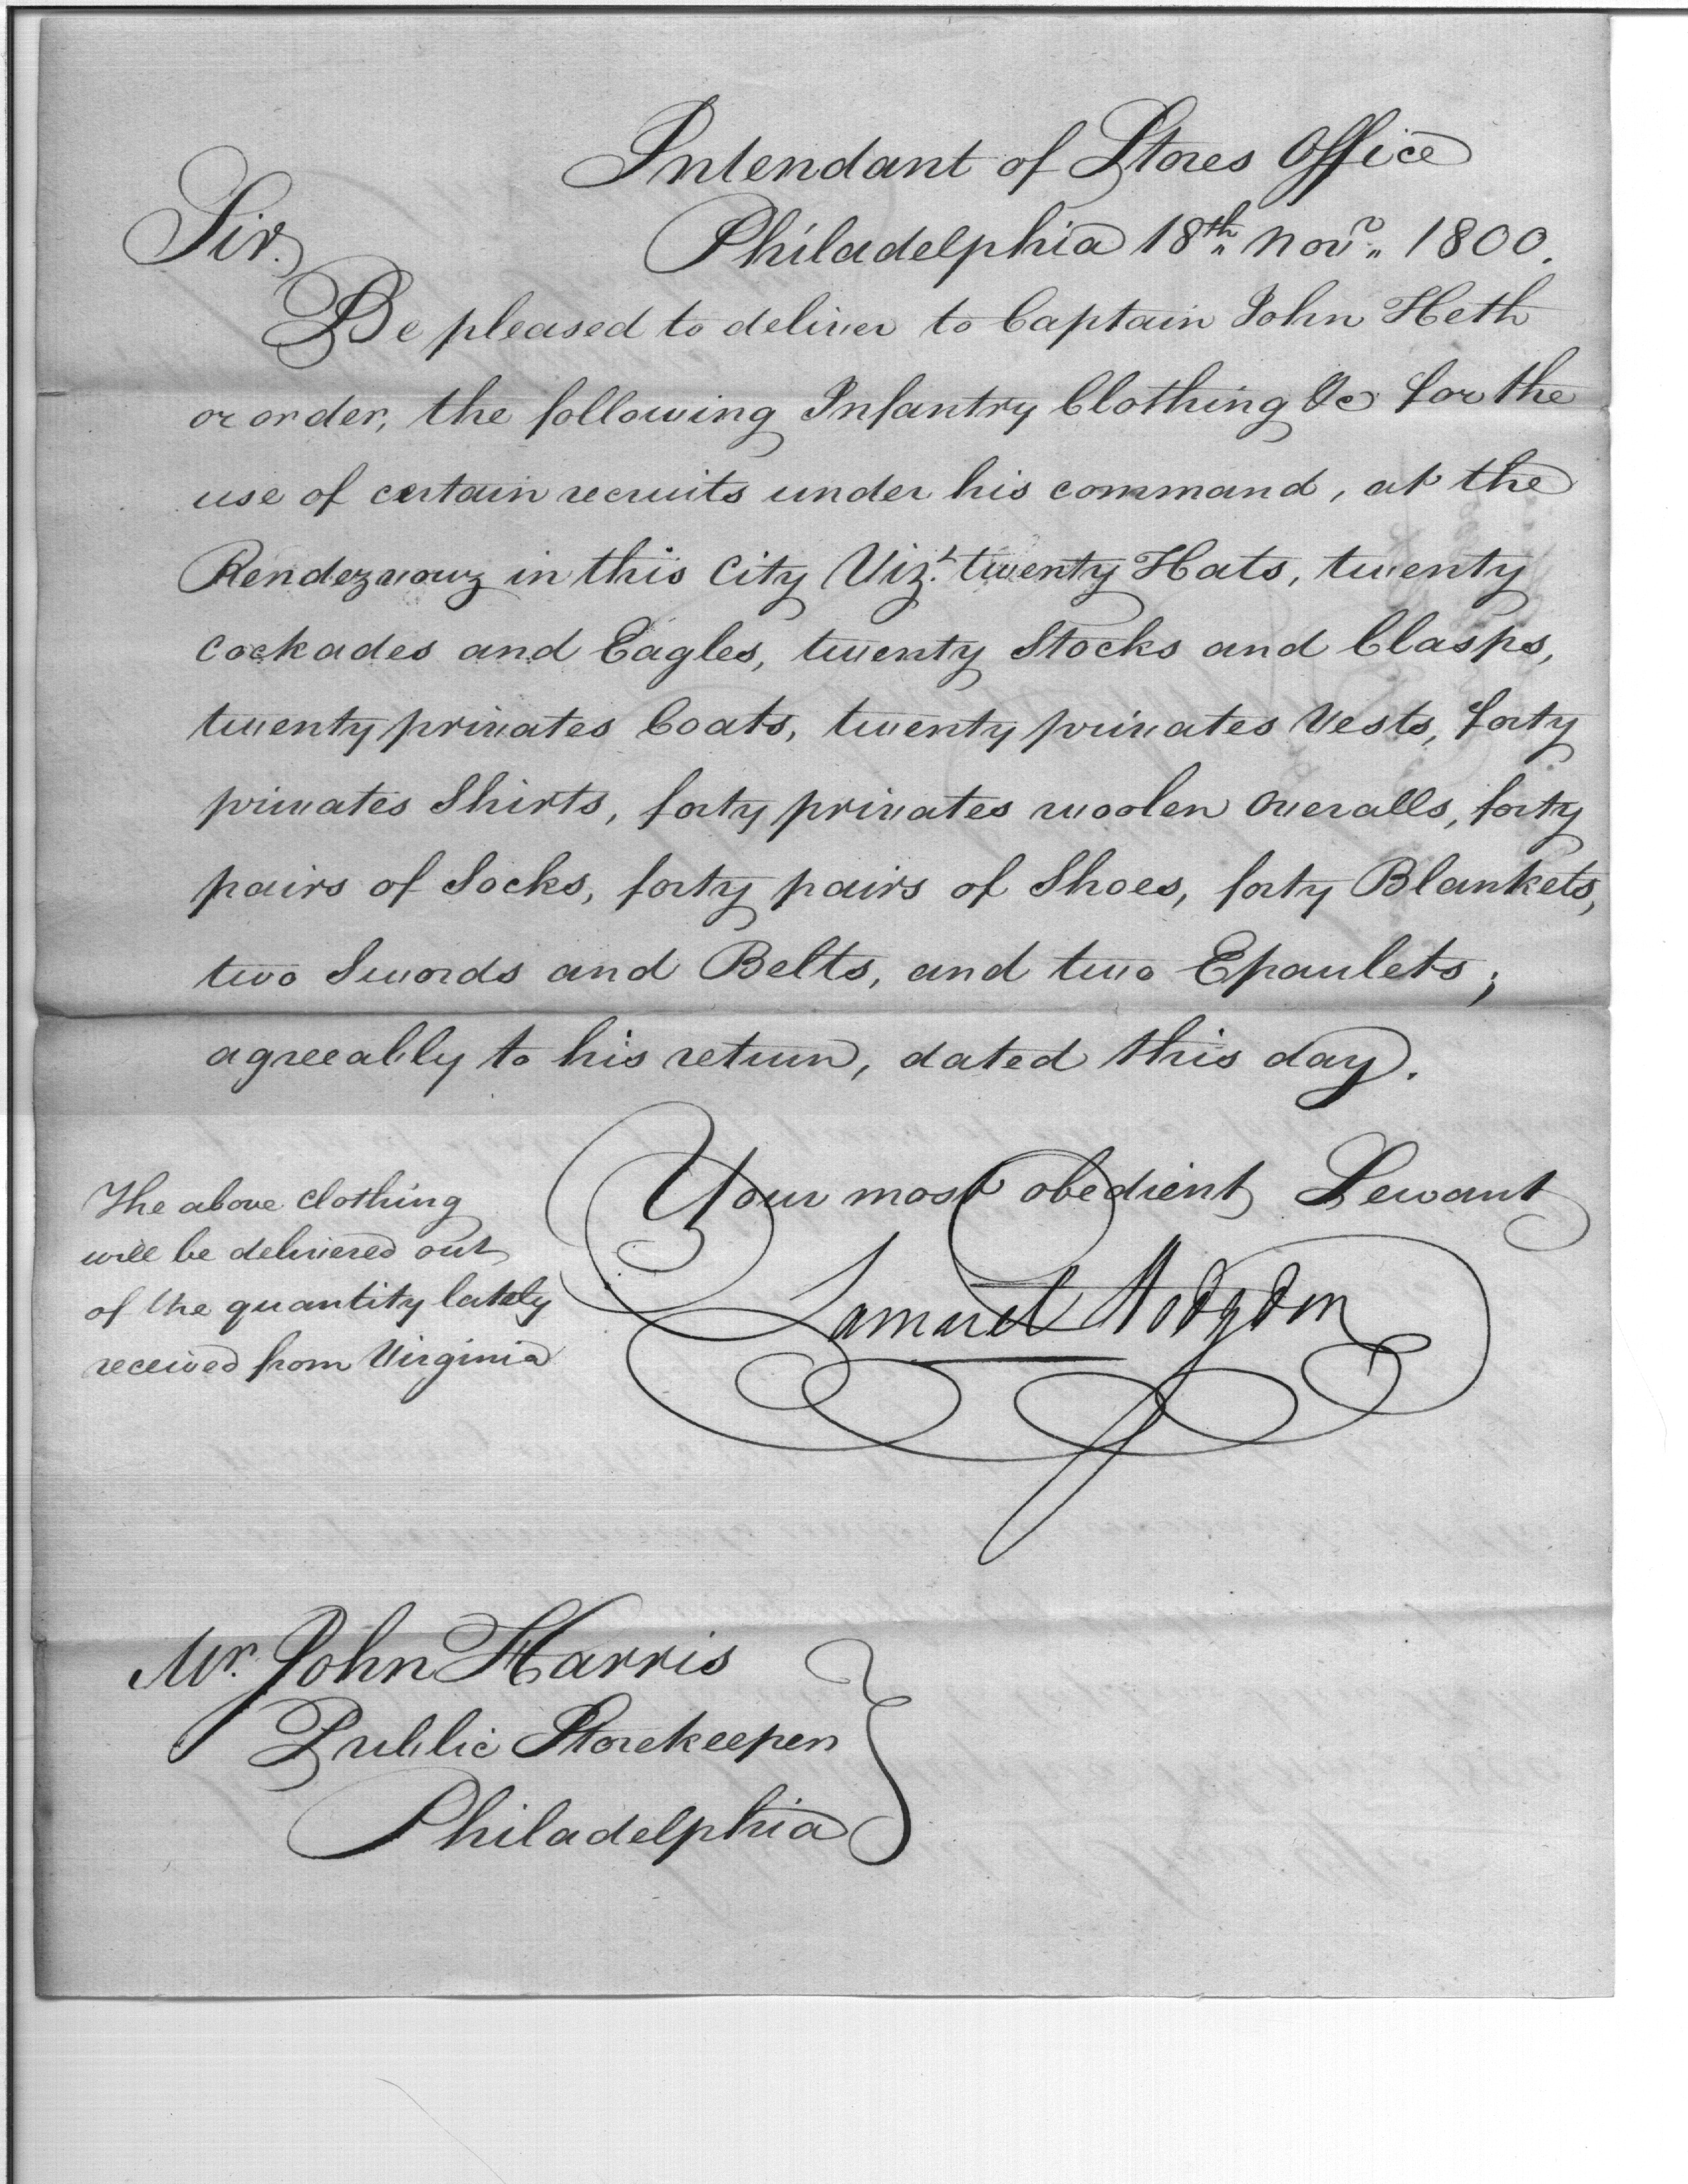 Intendant of Stores Office
Philadelphia 18th Novr 1800.
Sir.
Be pleased to deliver to Captain John Heth
or order, the following Infantry Clothing &c for the
use of certain recruits under his command, at the
Rendezvouz in this City Vizt twenty Hats, twenty
Cockades and Eagles, twenty Stocks and Clasps,
twenty privates Coats, twenty privates Vests, forty
privates Shirts, forty privates woolen Overalls, forty
pairs of Socks, forty pairs of Shoes, forty Blankets,
two Swords and Belts, and two Epaulets;
agreeably to his return, dated this day.
Your most obedient Servant
Samuel Hodgdon
The above Clothing
will be delivered out
of the quantity lately
received from Virginia
Mr. John Harris
Public Storekeeper
Philadelphia